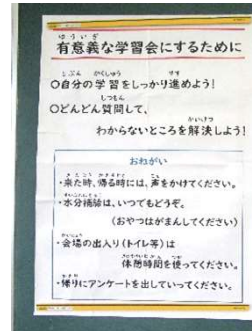 ゆういぎ
有意義な学習会にするために
じぶん がくしゅう すす
○自分の学習をしっかり進めよう!
しつもん
○どんどん質問して、
かいけつ
わからないところを解決しよう!
おねがい
・来た時、帰る時には、声をかけてください。
・水分補給は、いつでもどうぞ。
(おやつはがまんしてください)
・会場の出入り(トイレ等)は
休憩時間を使ってください。
・帰りにアンケートを出していってください。